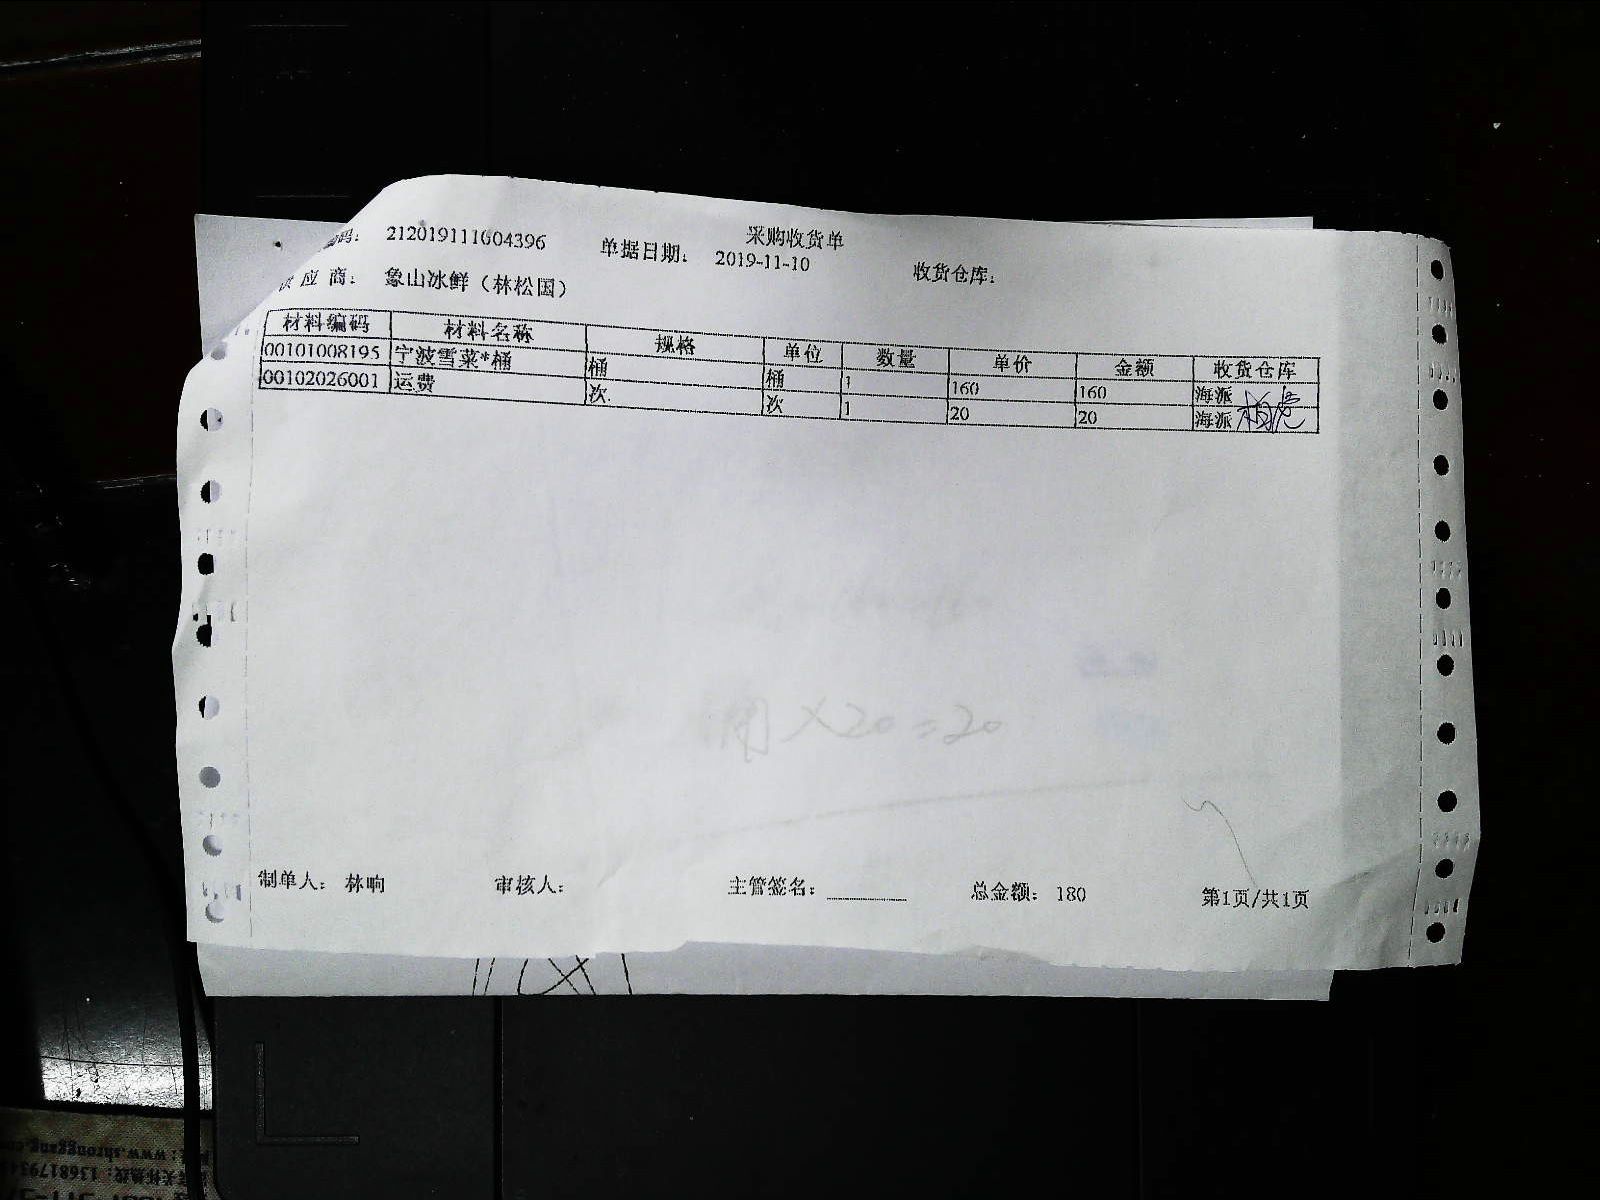 采购收货单
编码： 212019111004396 单据日期： 2019-11-10 收货仓库：
供应商： 象山冰鲜（林松国）
材料编码 材料名称 规格 单位 数量 单价 金额 收货仓库
00101008195 宁波雪菜*桶 桶 桶 1 160 160 海派
00102026001 运费 次 次 1 20 20 海派
X20=20
制单人： 林响 审核人： 主管签名： 总金额： 180 第1页/共1页